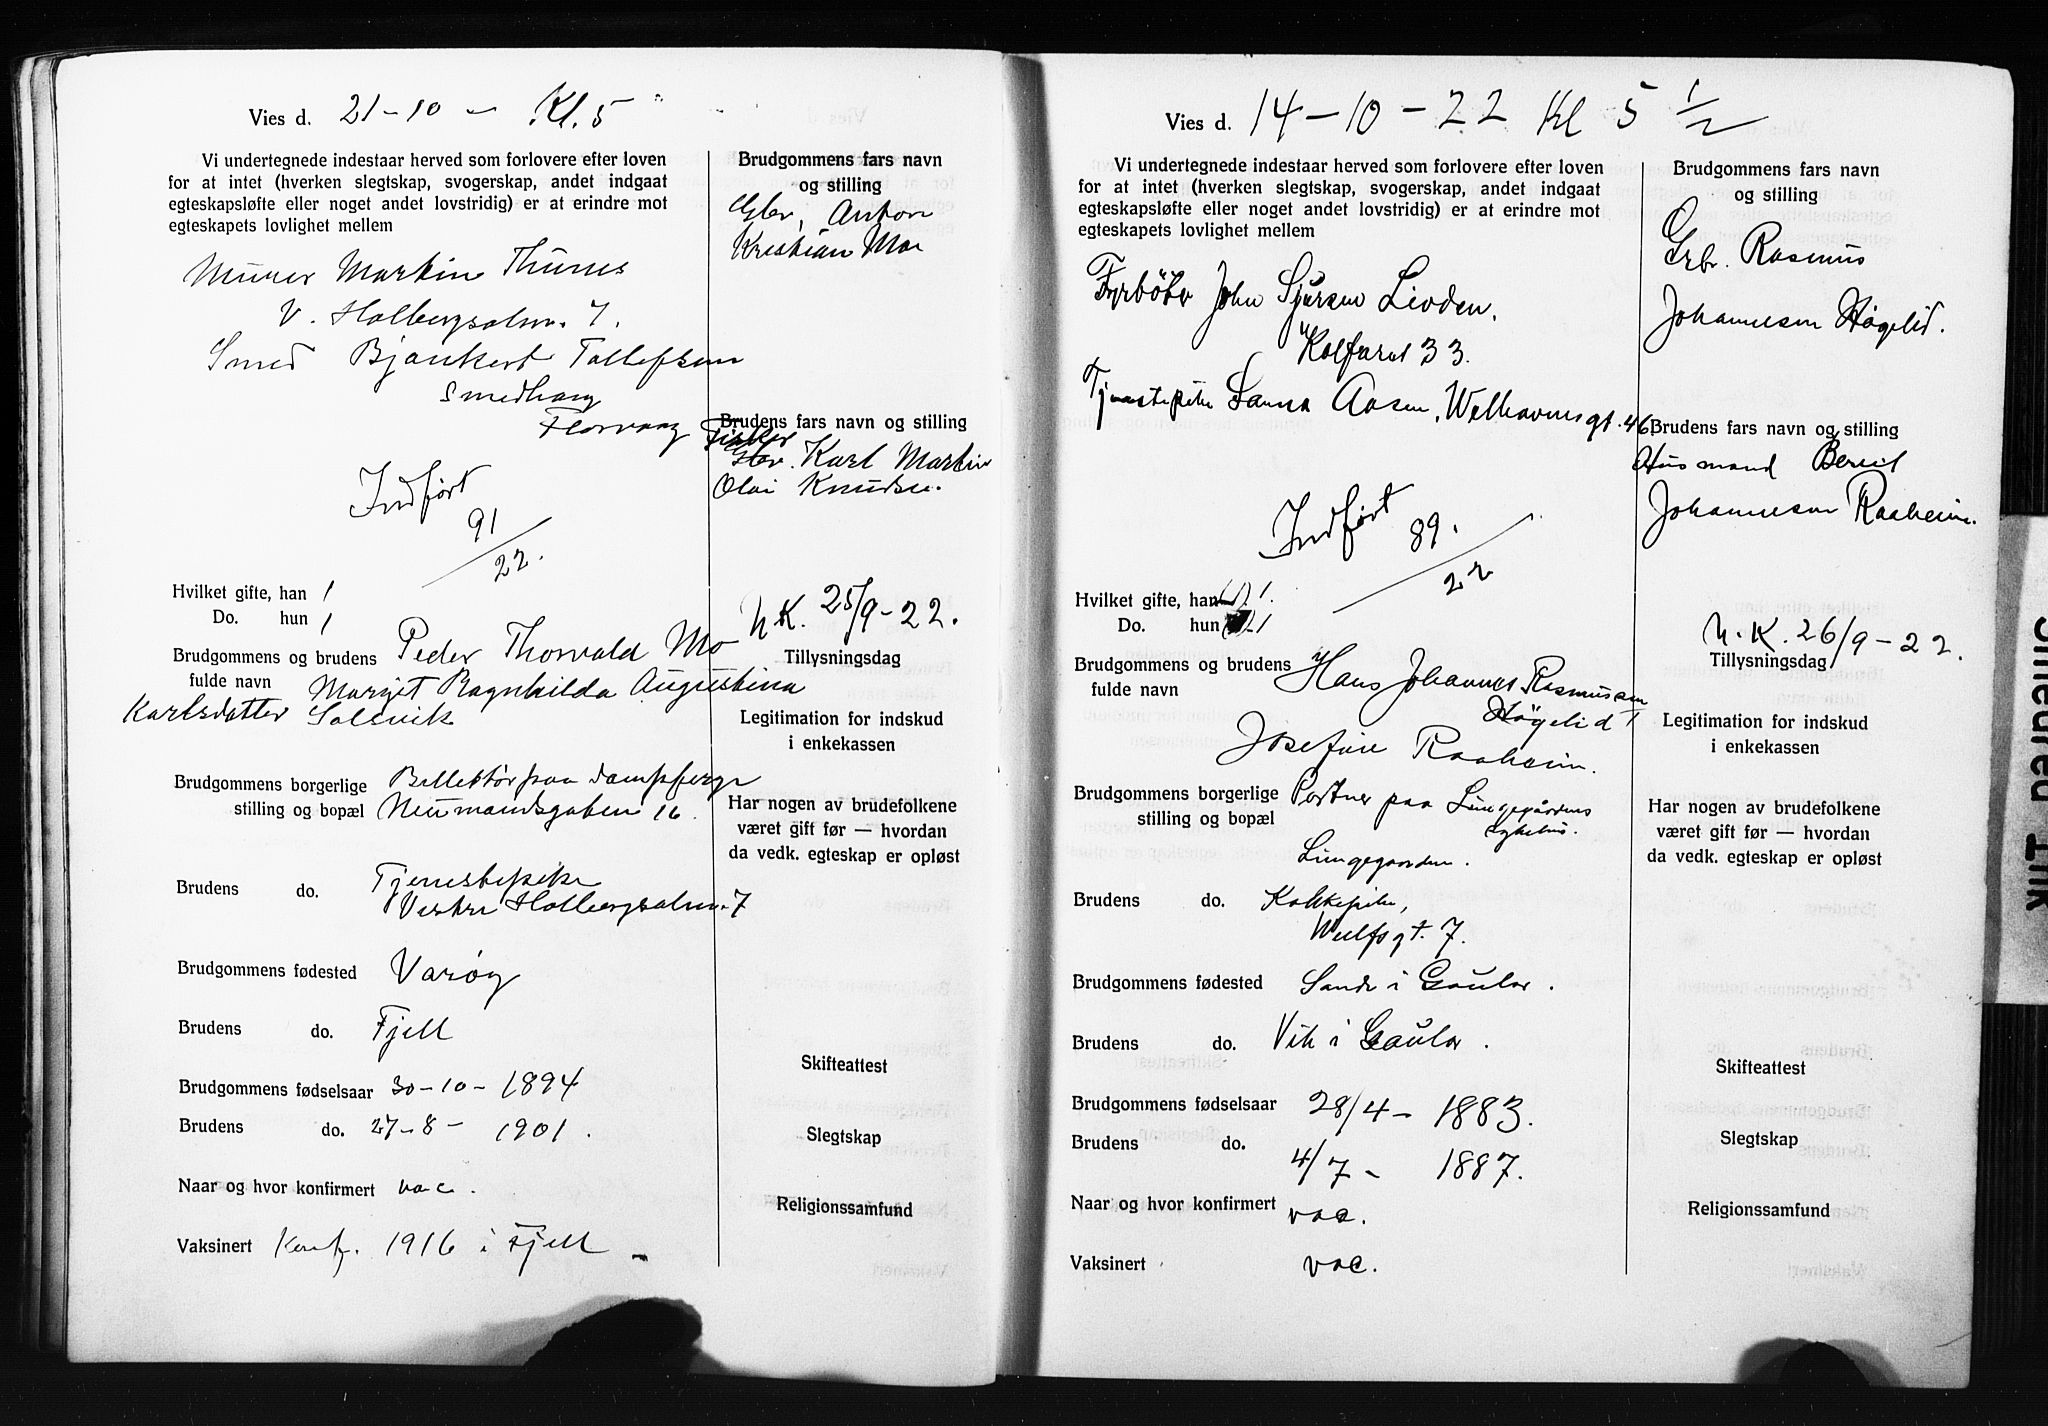 Vies d. 21-10 - Kl. 5
Vi undertegnede indestaar herved som forlovere efter loven
for at intet (hverken slegtskap, svogerskap, andet indgaat
egteskapsløfte eller noget andet lovstridig) er at erindre mot
egteskapets lovlighet mellem
Murer Martin Thunes
V. Holbergsalm. 7.
Smed Bjankert Tollefsen
Smedhaug
Florvaag
Indført
91
22.
Hvilket gifte, han 1
Do. hun 1
Brudgommens og brudens Peder Thorvald Mo
fulde navn Margit Ragnhilda Augustina
Karlsdatter Solsvik
Brudgommens borgerlige Billettør paa dampferge
stilling og bopæl Neumandsgaten 16.
Brudens do. Tjenestepike
Vestre Holbergsalm. 7
Brudgommens fødested Varøy
Brudens do. Fjell
Brudgommens fødselsaar 30-10-1894
Brudens do. 27-8-1901.
Naar og hvor konfirmert vac.
Vaksinert Konf. 1916 i Fjell
Brudgommens fars navn
og stilling
Gbr. Anton
Kristian Mo
Brudens fars navn og stilling
Fisker
Gbr. Karl Martin
Olai Knudsen.
N.K. 25/9-22.
Tillysningsdag
Legitimation for indskud
i enkekassen
Har nogen av brudefolkene
været gift før — hvordan
da vedk. egteskap er opløst
Skifteattest
Slegtskap
Religionssamfund
Vies d. 14-10-22 Kl 5 1/2
Vi undertegnede indestaar herved som forlovere efter loven
for at intet (hverken slegtskap, svogerskap, andet indgaat
egteskapsløfte eller noget andet lovstridig) er at erindre mot
egteskapets lovlighet mellem
Fyrbøter John Sjursen Livden.
Kalfaret 33.
Tjenestepike Sanna Aasen, Welhavensgt. 46.
Indført
89.
22
Hvilket gifte, han 1.
Do. hun 1
Brudgommens og brudens Hans Johannes Rasmussen
fulde navn Høgelid
Josefine Raaheim.
Brudgommens borgerlige Portner paa Lungegårdens
stilling og bopæl sykehus.
Lungegaarden.
Brudens do. Kokkepike,
Wulfsgt. 7.
Brudgommens fødested Sande i Gaular.
Brudens do. Vik i Gaular.
Brudgommens fødselsaar 28/4-1883.
Brudens do. 4/7-1887.
Naar og hvor konfirmert vac.
Vaksinert vac.
Brudgommens fars navn
og stilling
Gbr. Rasmus
Johannesen Høgelid.
Brudens fars navn og stilling
Husmand Bereit
Johannesen Raaheim.
N.K. 26/9-22.
Tillysningsdag
Legitimation for indskud
i enkekassen
Har nogen av brudefolkene
været gift før — hvordan
da vedk. egteskap er opløst
Skifteattest
Slegtskap
Religionssamfund
Smeared Ink